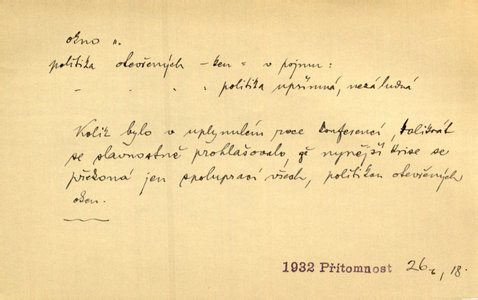 okno n.
politika otevřených -ken = v pojmu:
- - " " politika upřímná, nezáludná
Kolik bylo v uplynulém roce konferencí, tolikrát
se slavnostně prohlašovalo, že nynější krise se
překoná jen spoluprací všech, politikou otevřených
oken.
1932 Přítomnost 26, 18.